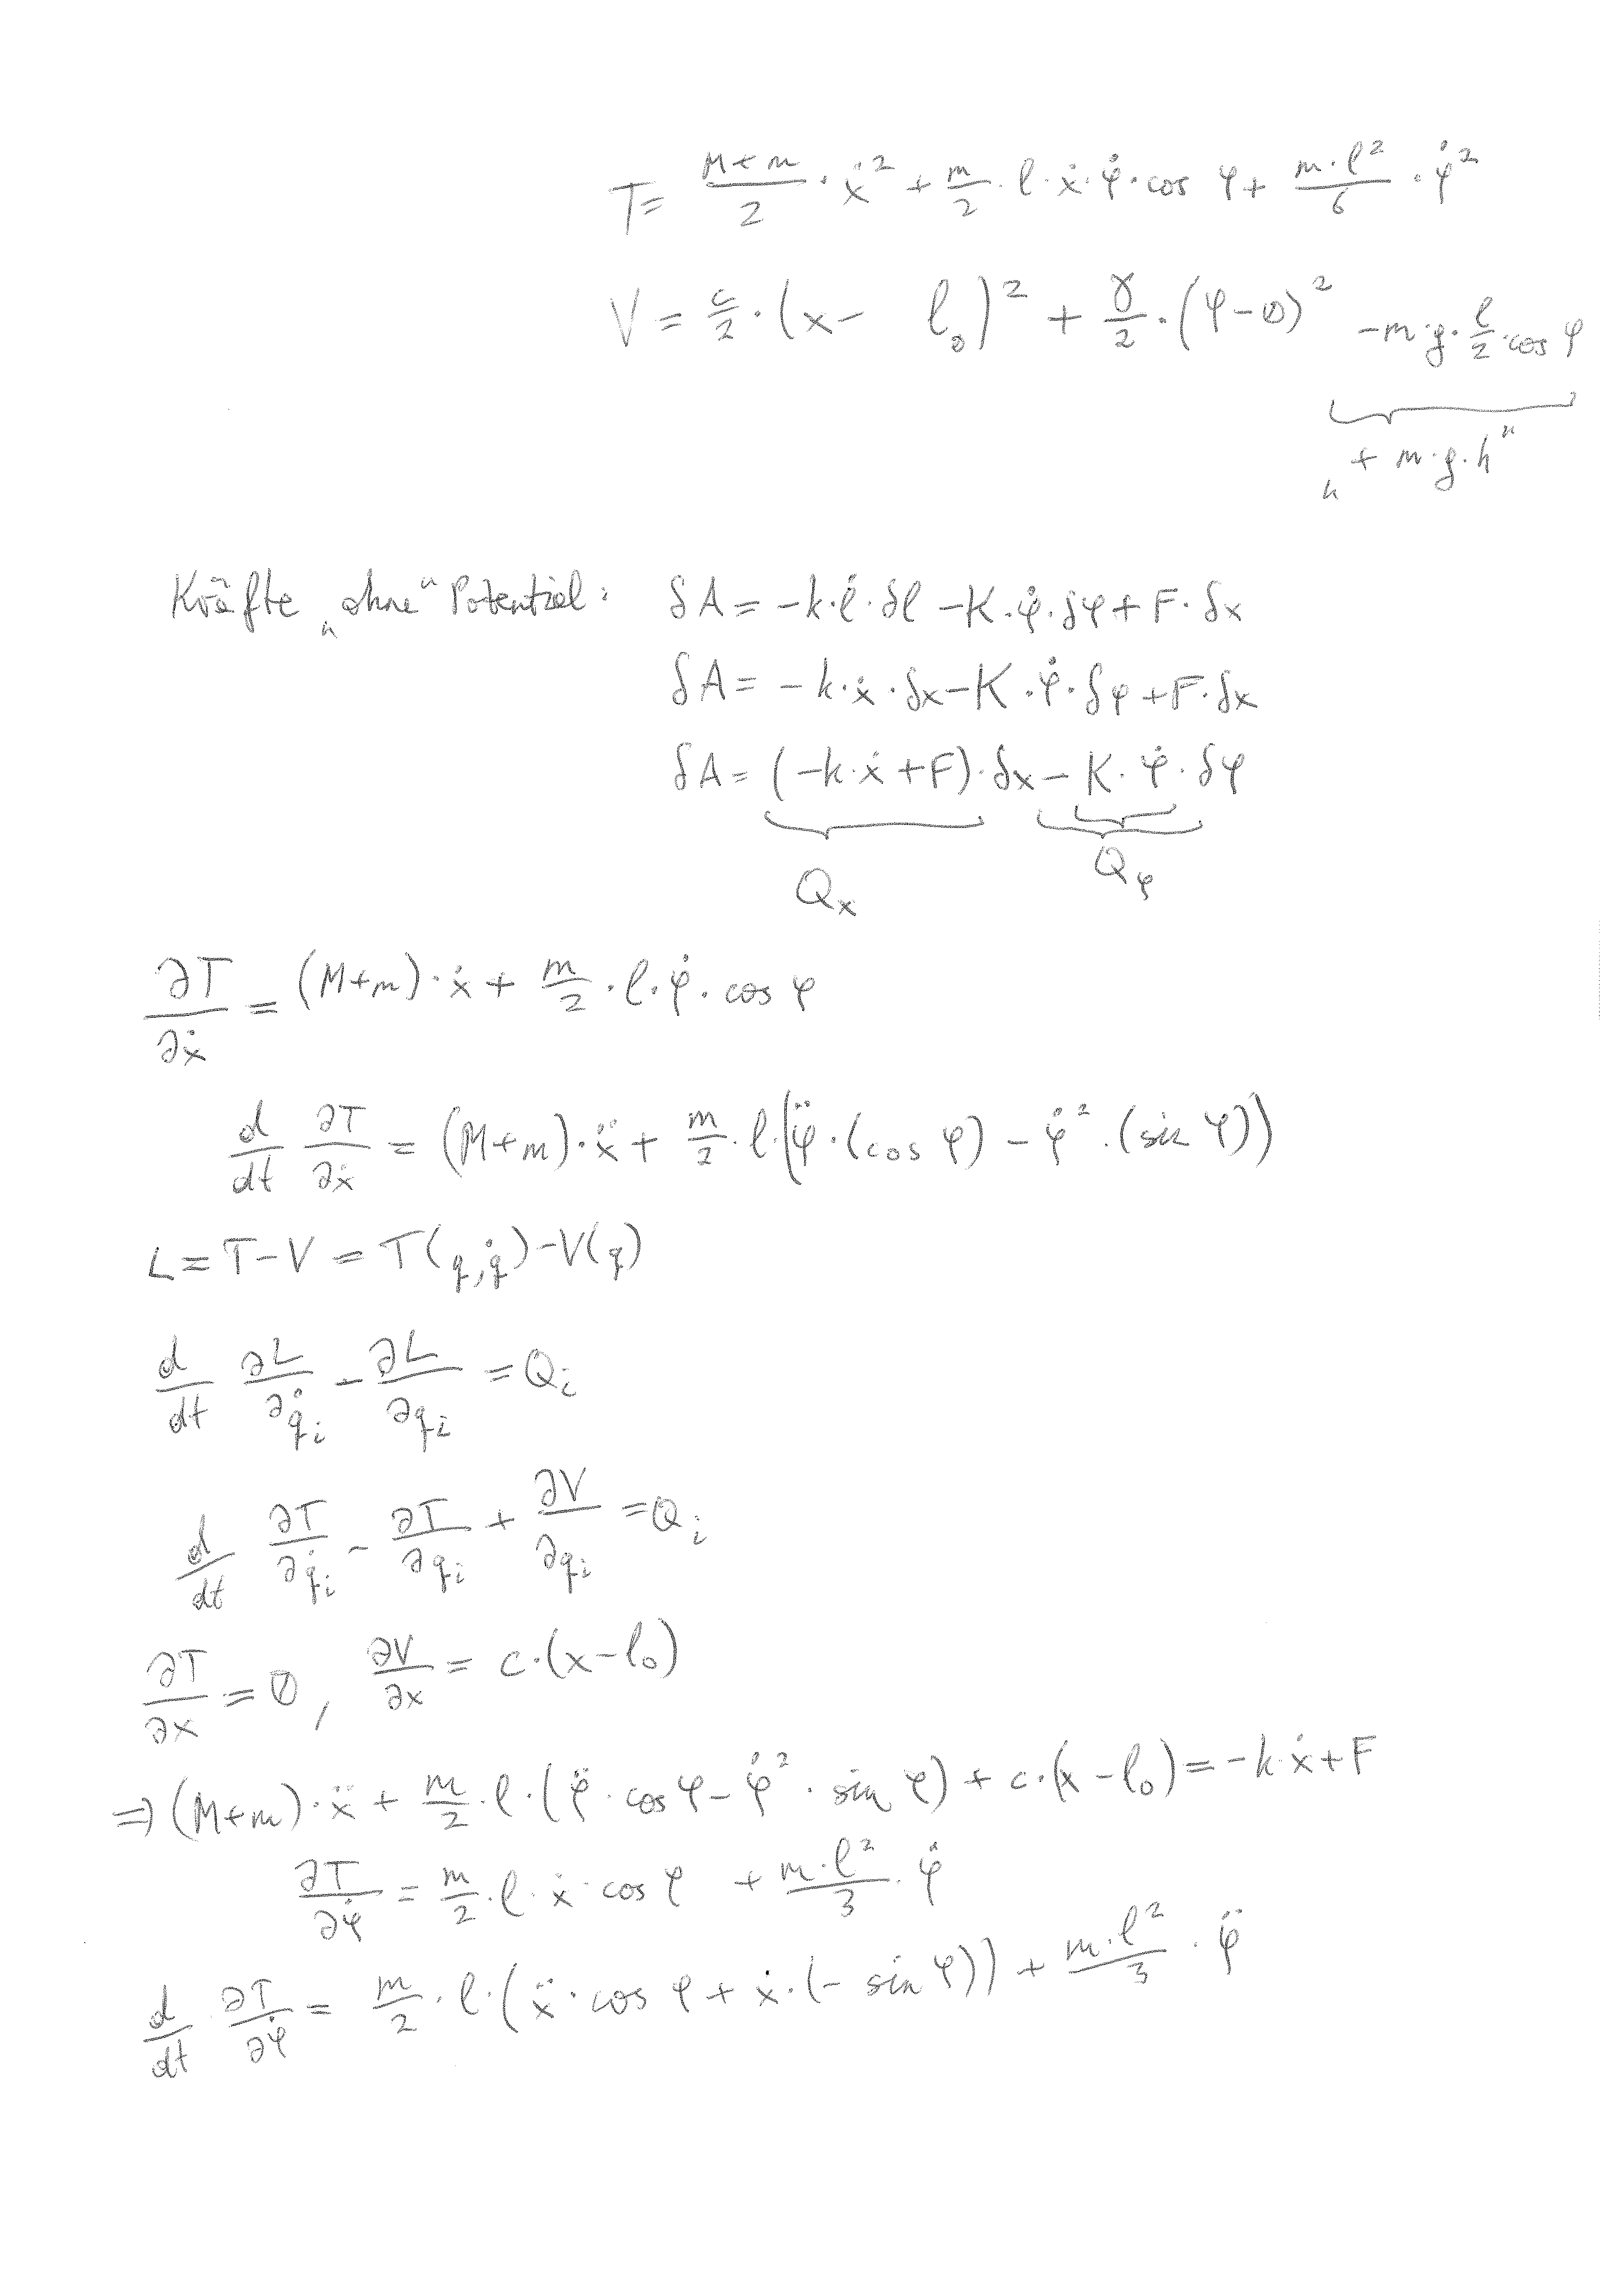 T = (M+m)/2 · ẋ² + m/2 · l · ẋ · φ̇ · cos φ + (m·l²)/6 · φ̇²
V = c/2 · (x − l₀)² + γ/2 · (φ−0)² −m·g·l/2·cos φ
„+ m·g·h“
Kräfte „ohne“ Potential: δA = −k·l̇·δl −K·φ̇·δφ + F·δx
δA = −k·ẋ·δx−K·φ̇·δφ +F·δx
δA = (−k·ẋ+F)·δx − K·φ̇·δφ
Q_x Q_φ
∂T/∂ẋ = (M+m)·ẋ + m/2·l·φ̇·cos φ
d/dt ∂T/∂ẋ = (M+m)·ẍ + m/2·l·(φ̈·(cos φ) − φ̇²·(sin φ))
L = T−V = T(q,q̇)−V(q)
d/dt ∂L/∂q̇_i − ∂L/∂q_i = Q_i
d/dt ∂T/∂q̇_i − ∂T/∂q_i + ∂V/∂q_i = Q_i
∂T/∂x = 0, ∂V/∂x = c·(x−l₀)
⇒ (M+m)·ẍ + m/2·l·(φ̈·cos φ − φ̇²·sin φ) + c·(x−l₀) = −k·ẋ+F
∂T/∂φ̇ = m/2·l·ẋ·cos φ + (m·l²)/3·φ̇
d/dt ∂T/∂φ̇ = m/2·l·(ẍ·cos φ + ẋ·(− sin φ)) + (m·l²)/3·φ̈